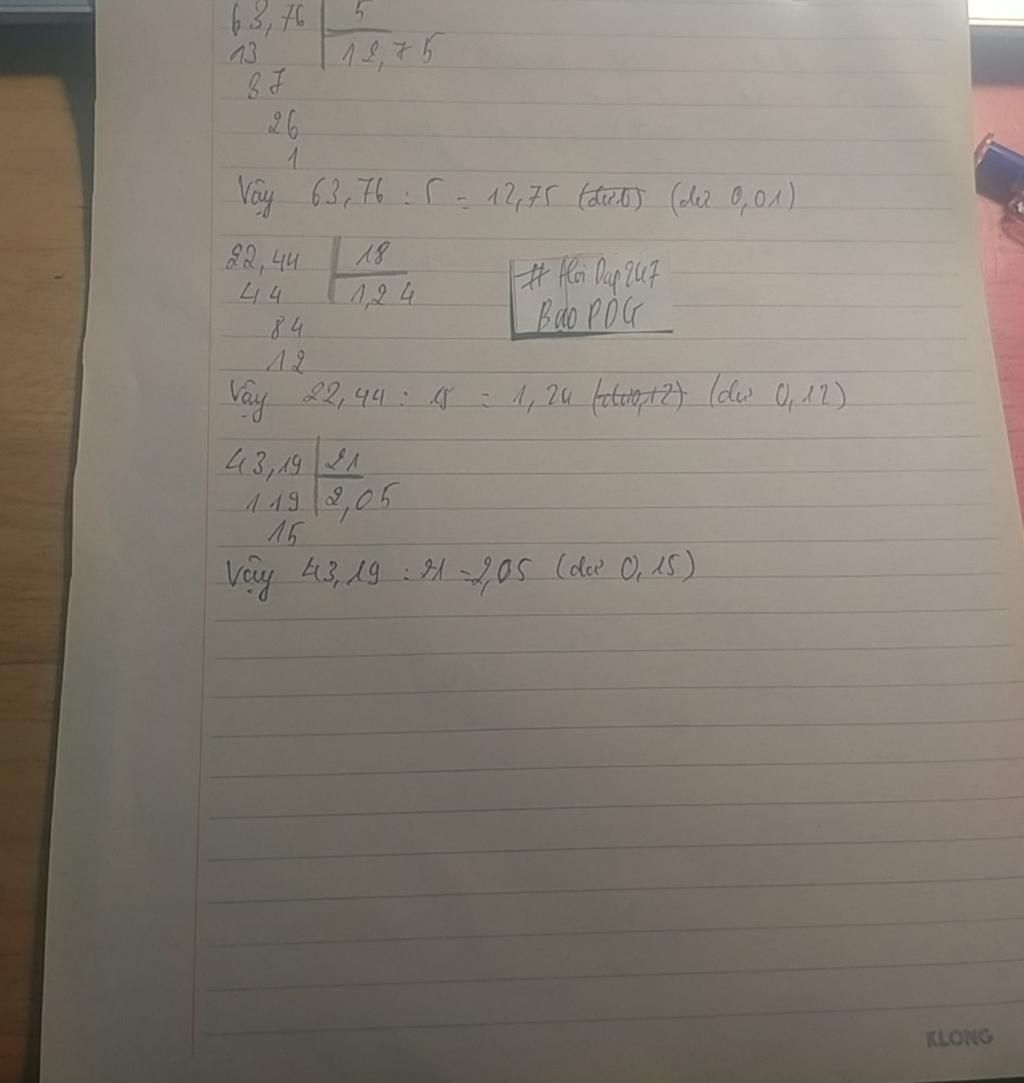 63,76 5
13 12,75
37
26
1
Vậy 63,76 : 5 = 12,75 (dư 0,01)
22,44 18
44 1,24
84
12
# Hoi Dap 247
Bao PDG
Vậy 22,44 : 18 = 1,24 (dư 0,12) (dư 0,12)
43,19 21
119 2,05
15
Vậy 43,19 : 21 = 2,05 (dư 0,15)
KLONG